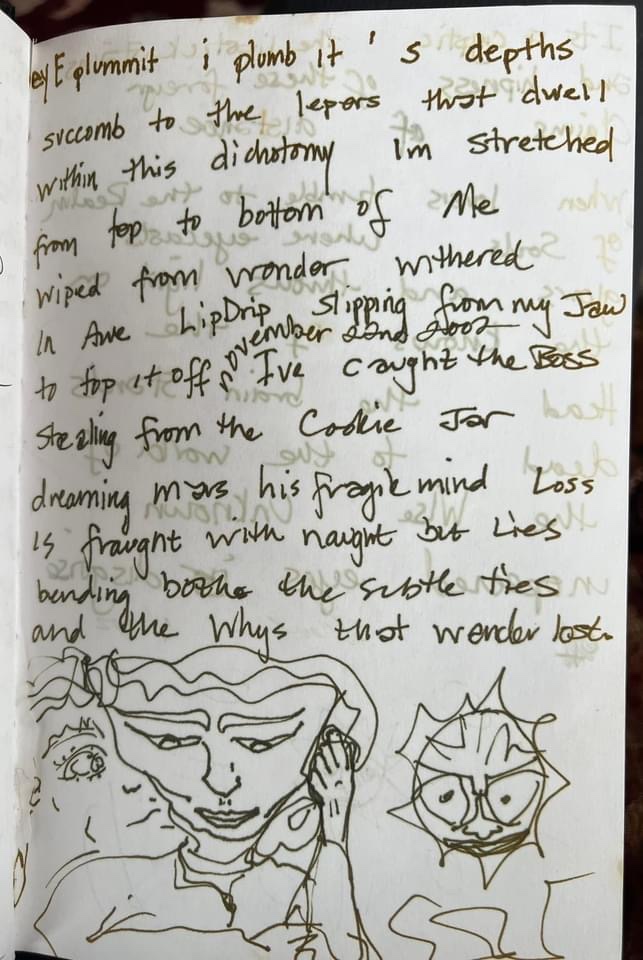 eyE plummit i plumb it's depths
succomb to the lepers that dwell
within this dichotomy Im stretched
from top to bottom of Me
wiped from wonder withered
In Awe LipDrip slipping from my Jaw
november 22nd 2002
to top it off I've caught the Boss
stealing from the Cookie Jar
dreaming mars his fragile mind Loss
is fraught with naught but Lies
bending both the subtle ties
and the Whys that wonder lost.